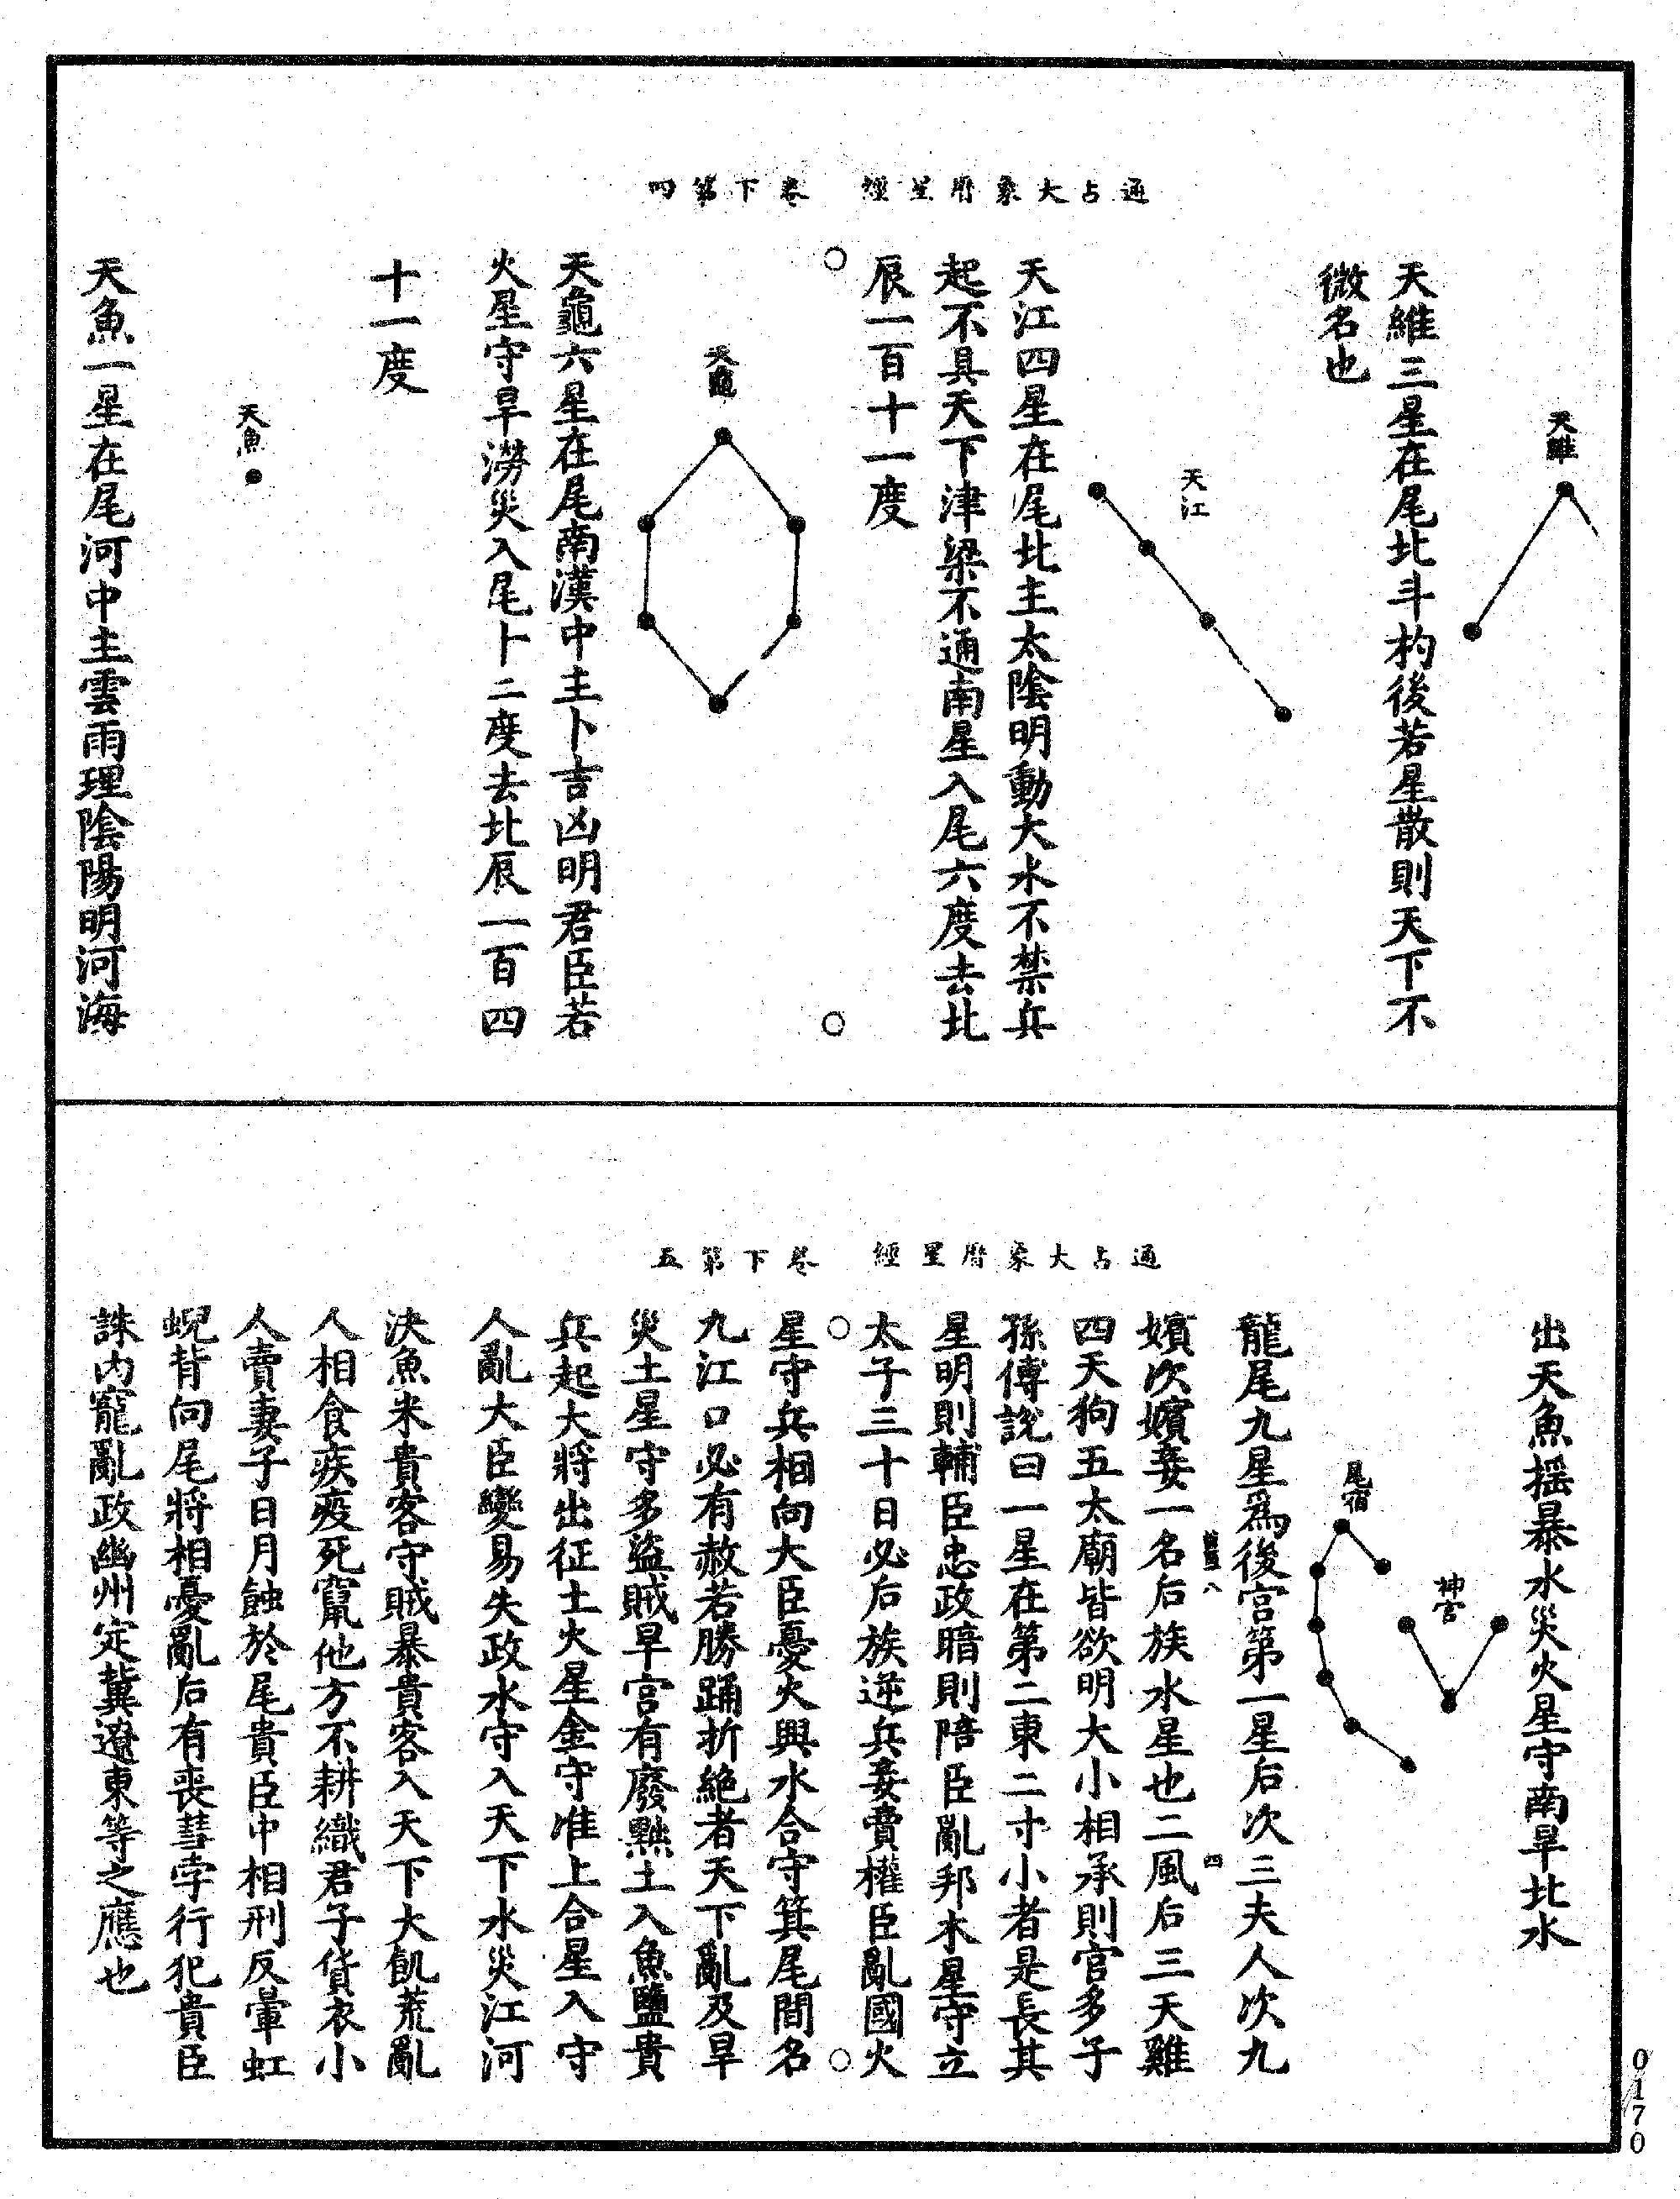 通占大象曆星經　卷下第四
天維
天維三星在尾北斗杓後若星散則天下不
微名也
天江
天江四星在尾北主太陰明動大水不禁兵
起不具天下津梁不通南星入尾六度去北
辰一百十一度
天龜
天龜六星在尾南漢中主卜吉凶明君臣若
火星守旱澇災入尾卜二度去北辰一百四
十一度
天魚
天魚一星在尾河中主雲雨理陰陽明河海
通占大象曆星經　卷下第五
出天魚摇暴水災火星守南旱北水
神宮
尾宿
龍尾九星爲後宮第一星后次三夫人次九
八
四
嬪次嬪妾一名后族水星也二風后三天雞
四天狗五太廟皆欲明大小相承則宮多子
孫傅說曰一星在第二東二寸小者是長其
星明則輔臣忠政暗則陪臣亂邦木星守立
太子三十日必后族逆兵妾賣權臣亂國火
星守兵相向大臣憂火與水合守箕尾間名
九江口必有赦若勝踊折絕者天下亂及旱
災土星守多盜賊旱宮有廢黜土入魚鹽貴
兵起大將出征土火星金守准上合星入守
人亂大臣變易失政水守入天下水災江河
決魚米貴客守賊暴貴客入天下大飢荒亂
人相食疾疫死竄他方不耕織君子貨衣小
人賣妻子日月蝕於尾貴臣中相刑反暈虹
蜺背向尾將相憂亂后有喪彗孛行犯貴臣
誅内寵亂政幽州定冀遼東等之應也
0170